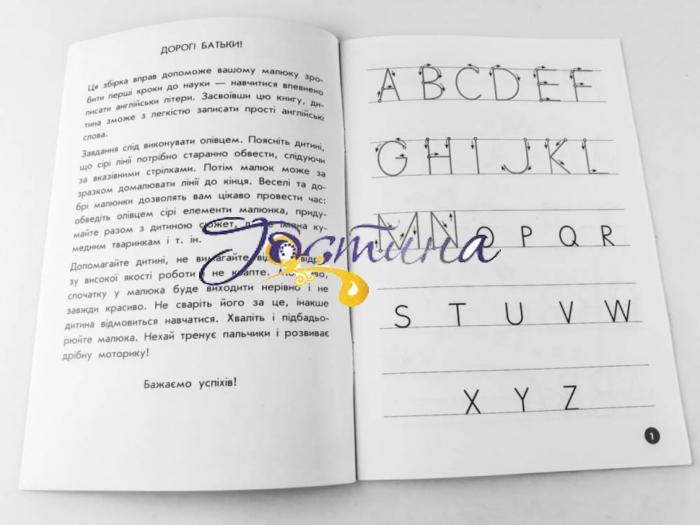 ДОРОГІ БАТЬКИ!
Ця збірка вправ допоможе вашому малюку зро-
бити перші кроки до науки — навчитися впевнено
писати англійськи літери. Засвоївши цю книгу, ди-
тина зможе з легкістю записати прості англійські
слова.
Завдання слід виконувати олівцем. Поясніть дитині,
що сірі лінії потрібно старанно обвести, слідуючи
за вказівними стрілками. Потім малюк може за
зразком домалювати лінії до кінця. Веселі та до-
брі малюнки дозволять вам цікаво провести час:
обведіть олівцем сірі елементи малюнка, приду-
майте разом з дитиною сюжет, імена ку-
медним тваринкам і т. ін.
Допомагайте дитині, не вимагайте від
зу високої якості роботи не
спочатку у малюка буде виходити нерівно і не
завжди красиво. Не сваріть його за це, інакше
дитина відмовиться навчатися. Хваліть і підбадьо-
рюйте малюка. Нехай тренує пальчики і розвиває
дрібну моторику!
Бажаємо успіхів!
A B C D E F
G H I J K L
M N O P Q R
S T U V W
X Y Z
1
Гостина